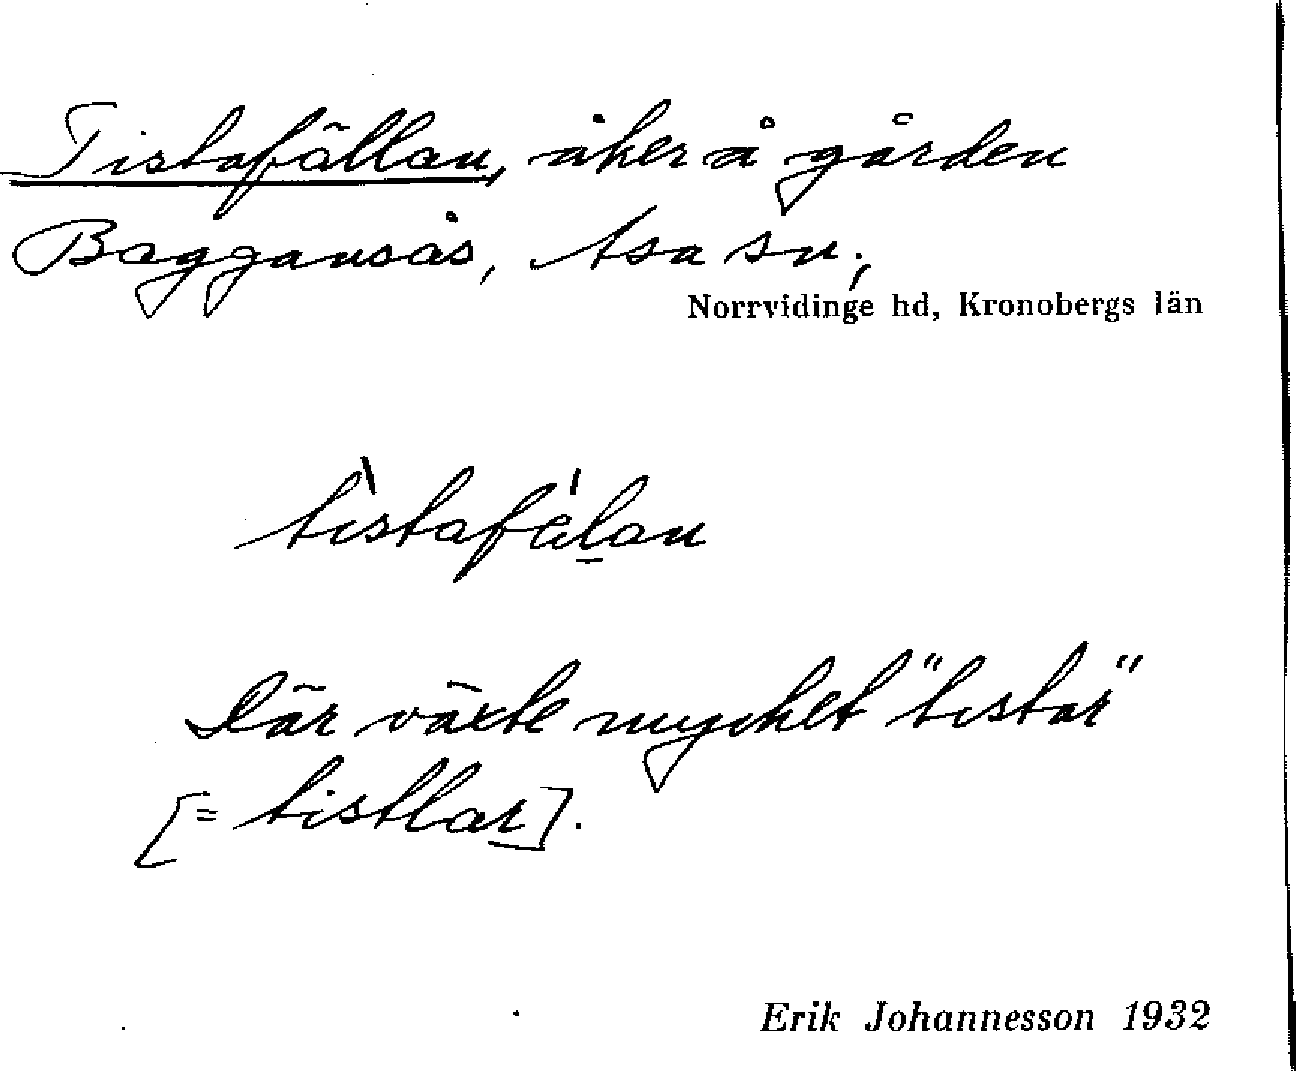 Tistafällan, åker å gården
Baggansås, Asa sn.,
Norrvidinge hd, Kronobergs län
tìstafä́l̲an
Där växte mycket "tistar"
[= tistlar].
Erik Johannesson 1932